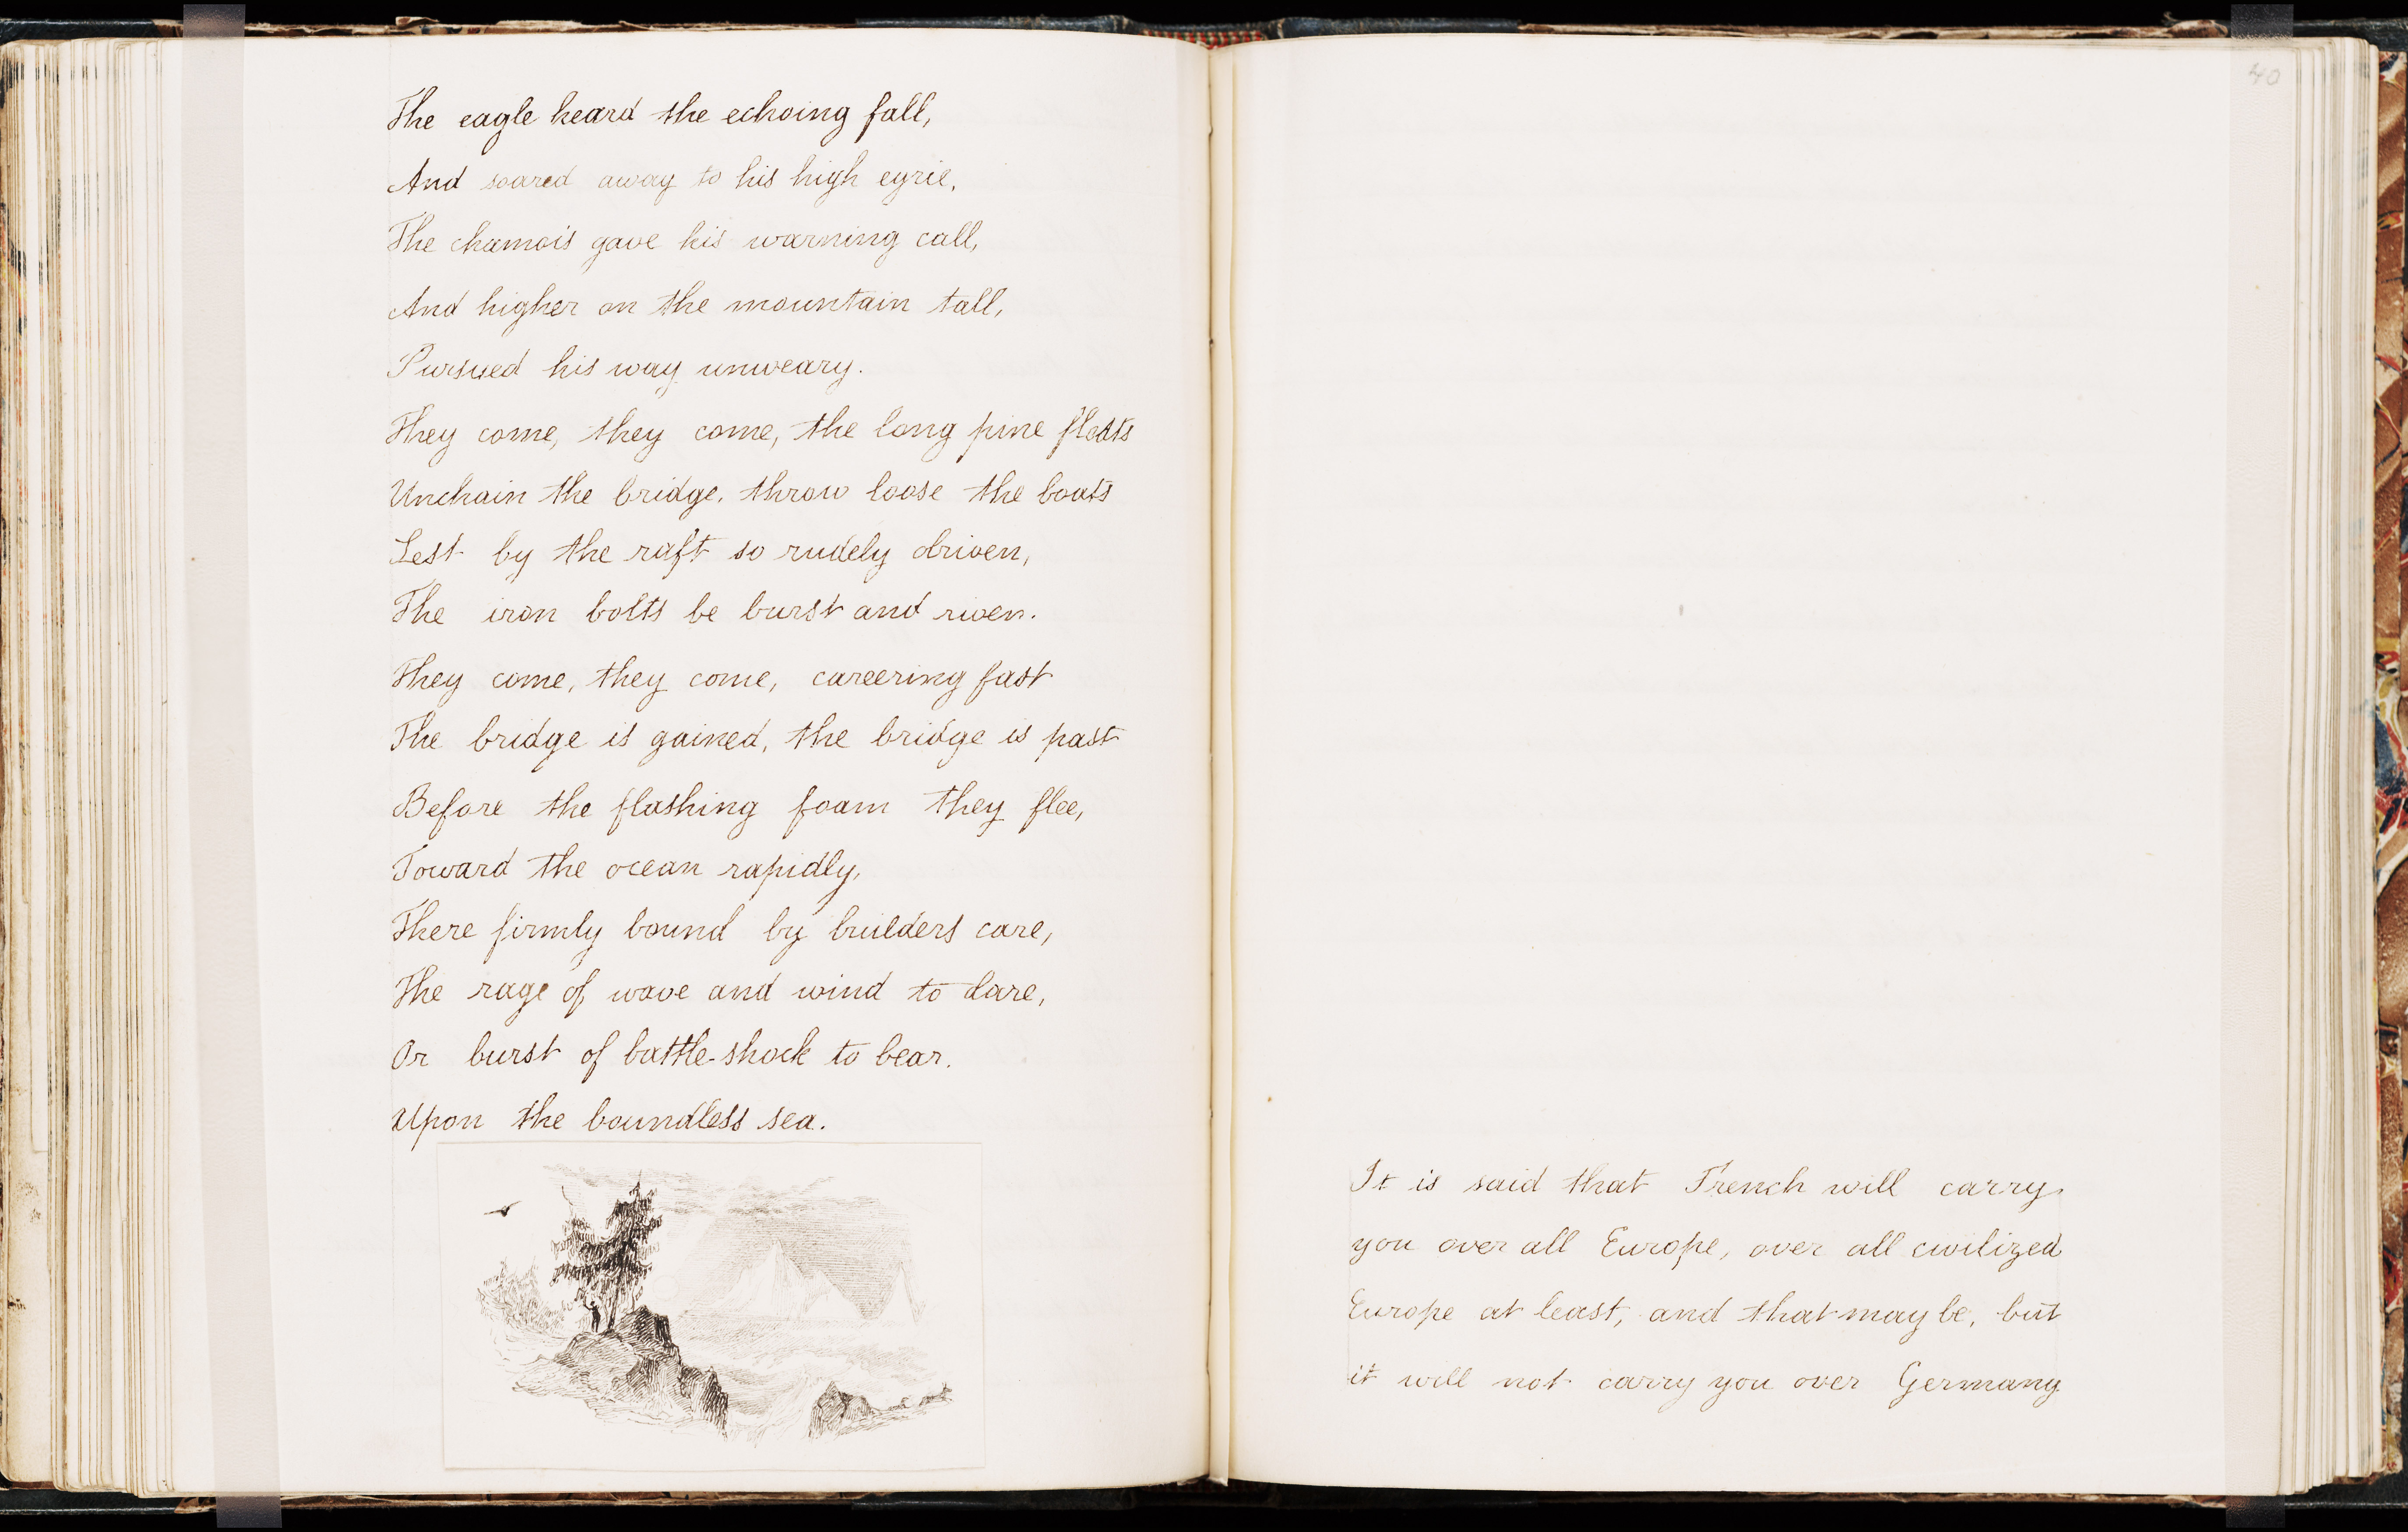 The eagle heard the echoing fall,
And soared away to his high eyrie,
The chamois gave his warning call,
And higher on the mountain tall,
Pursued his way unweary.
They come, they come, the long pine floats
Unchain the bridge, throw loose the boats
Lest by the raft so rudely driven,
The iron bolts be burst and riven.
They come, they come, careering fast
The bridge is gained, the bridge is past
Before the flashing foam they flee,
Toward the ocean rapidly,
There firmly bound by builders care,
The rage of wave and wind to dare,
Or burst of battle-shock to bear.
Upon the boundless sea.
40
It is said that French will carry
you over all Europe, over all civilized
Europe at least, and that may be, but
it will not carry you over Germany